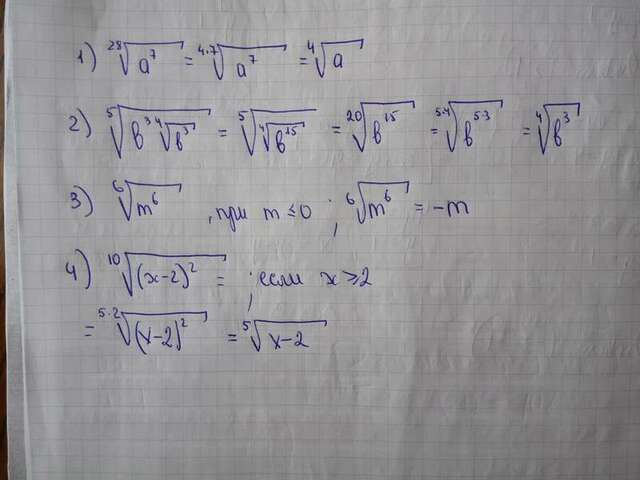 1) ²⁸√(a⁷) = ⁴·⁷√(a⁷) = ⁴√a
2) ⁵√(в³ ⁴√(в³)) = ⁵√(⁴√(в¹⁵)) = ²⁰√(в¹⁵) = ⁵·⁴√(в⁵·³) = ⁴√(в³)
3) ⁶√(m⁶) , при m ≤ 0 ; ⁶√(m⁶) = -m
4) ¹⁰√((x-2)²) = ; если x ≥ 2
= ⁵·²√((x-2)²) = ⁵√(x-2)